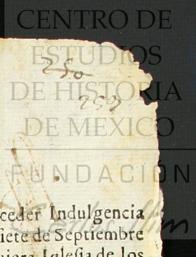 CENTRO DE
ESTUDIOS
DE HISTORIA
DE MEXICO
FUNDACIÓN
250
ceder Indulgencia
siete de Septiembre
Iglesia de los